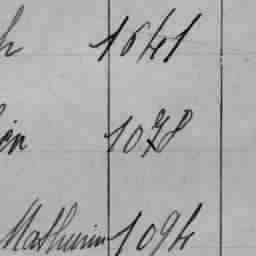 h 1641
ien 1078
Mathurin 1094